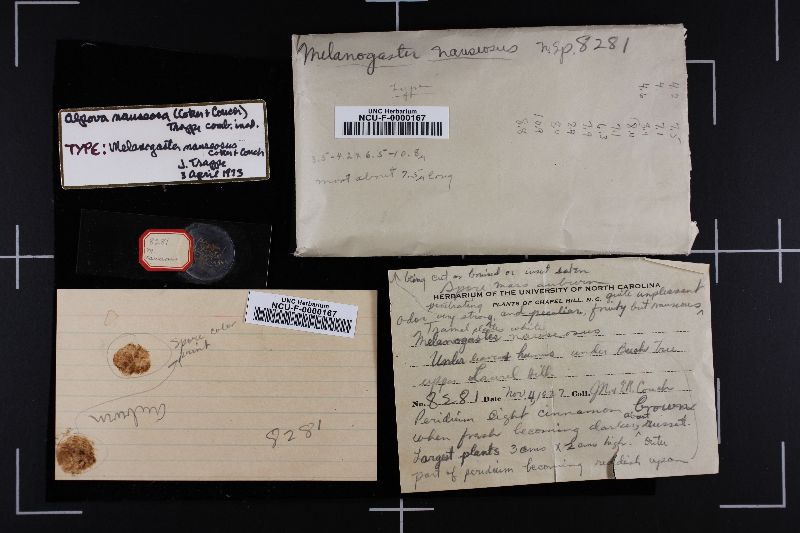 Melanogaster nauseosus n.sp. 8281
type
UNC Herbarium
NCU-F-0000167
3.5-4.2 x 6.5-10.8µ
most about 7.5µ long
4.2 7.5
4 7.1
4.6
7.1
6.3
7.9
10.9
8.8
Alpova nauseosa (Coker & Couch)
Trappe comb. ined.
TYPE: Melanogaster nauseosus
Coker & Couch
J. Trappe
3 April 1973
8281
M.
nauseosus
UNC Herbarium
NCU-F-0000167
Spore color
print
auburn
8281
being cut or bruised or insect eaten
Spore mass auburn
HERBARIUM OF THE UNIVERSITY OF NORTH CAROLINA
penetrating PLANTS OF CHAPEL HILL, N. C. quite unpleasant
odor very strong, and peculiar, fruity but nauseous
Tramal plates white
Melanogaster nauseosus
Under leaves & humus under Beech Tree
upper Laurel Hill
No. 8281 Date Nov 4, 1927 Coll. J.N. & E.M. Couch
Peridium light cinnamon brown
when fresh becoming darker, about russet.
Largest plants 3 cms x 2 cms high. Outer
part of peridium becoming reddish upon